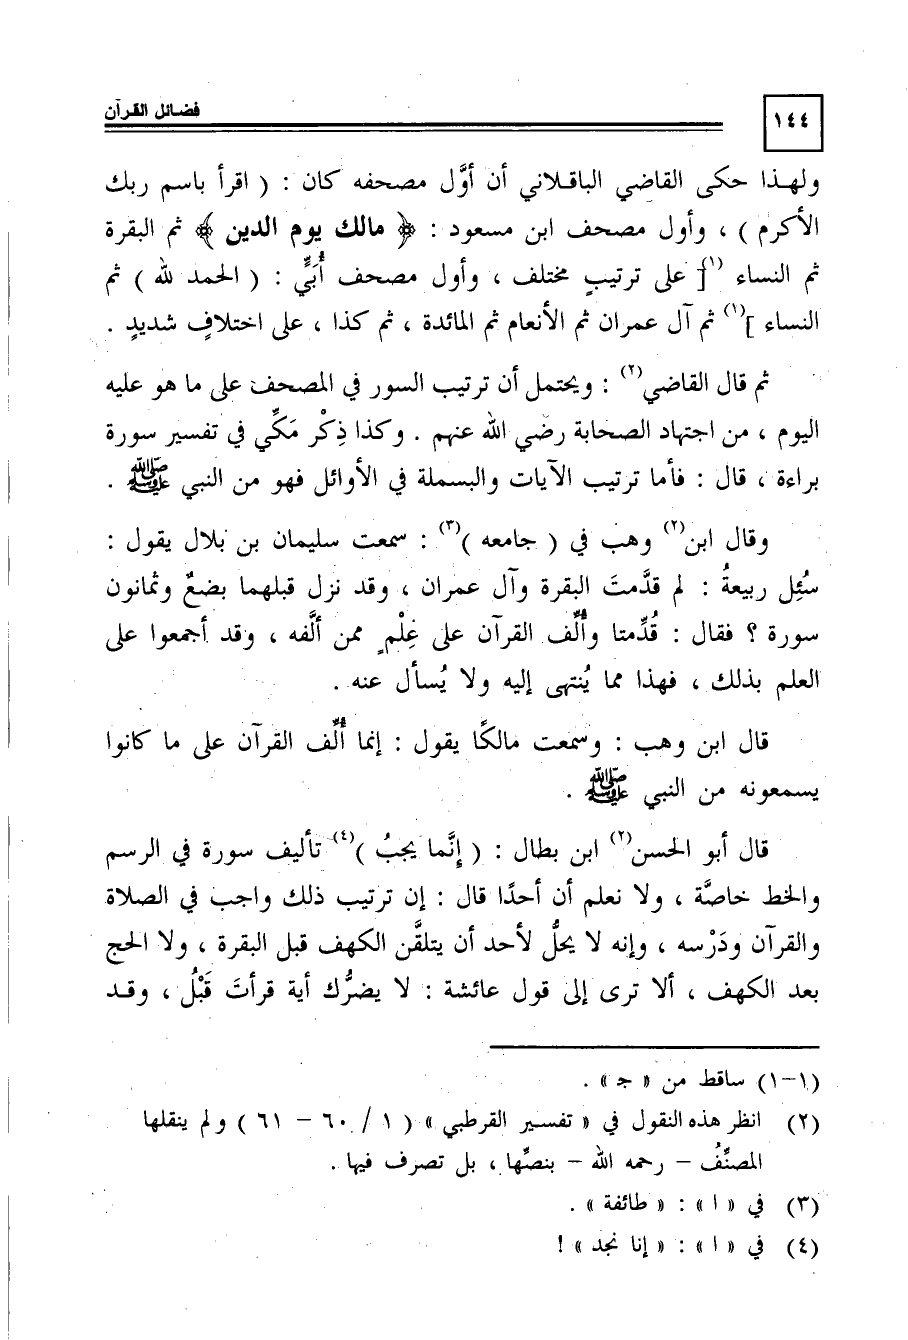 ١٤٤
فضائل القرآن
ولهذا حكى القاضي الباقلاني أن أوَّل مصحفه كان : ( اقرأ باسم ربك
الأكرم ) ، وأول مصحف ابن مسعود : ﴿ مالك يوم الدين ﴾ ثم البقرة
ثم النساء (١)[ على ترتيبٍ مختلف ، وأول مصحف أُبَيٍّ : ( الحمد لله ) ثم
النساء ](١) ثم آل عمران ثم الأنعام ثم المائدة ، ثم كذا ، على اختلافٍ شديدٍ .
ثم قال القاضي(٢) : ويحتمل أن ترتيب السور في المصحف على ما هو عليه
اليوم ، من اجتهاد الصحابة رضي الله عنهم . وكذا ذِكْر مَكِّي في تفسير سورة
براءة ، قال : فأما ترتيب الآيات والبسملة في الأوائل فهو من النبي ﷺ .
وقال ابن(٢) وهب في ( جامعه )(٣) : سمعت سليمان بن بلال يقول :
سُئِل ربيعةُ : لم قدَّمتَ البقرة وآل عمران ، وقد نزل قبلهما بضعٌ وثمانون
سورة ؟ فقال : قُدِّمتا وأُلِّف القرآن على عِلْمٍ ممن ألَّفه ، وقد أجمعوا على
العلم بذلك ، فهذا مما يُنتهى إليه ولا يُسأل عنه .
قال ابن وهب : وسمعت مالكًا يقول : إنما أُلِّف القرآن على ما كانوا
يسمعونه من النبي ﷺ .
قال أبو الحسن(٢) ابن بطال : ( إِنَّما يجبُ )(٤) تأليف سورة في الرسم
والخط خاصَّة ، ولا نعلم أن أحدًا قال : إن ترتيب ذلك واجب في الصلاة
والقرآن ودَرْسه ، وإنه لا يحلُّ لأحد أن يتلقَّن الكهف قبل البقرة ، ولا الحج
بعد الكهف ، ألا ترى إلى قول عائشة : لا يضرُّك أية قرأتَ قَبْلُ ، وقد
(١-١) ساقط من « جـ » .
(٢) انظر هذه النقول في « تفسير القرطبي » ( ١ / ٦٠ - ٦١ ) ولم ينقلها
المصنِّفُ - رحمه الله - بنصِّها ، بل تصرف فيها .
(٣) في « ا » : « طائفة » .
(٤) في « ا » : « إنا نجد » !